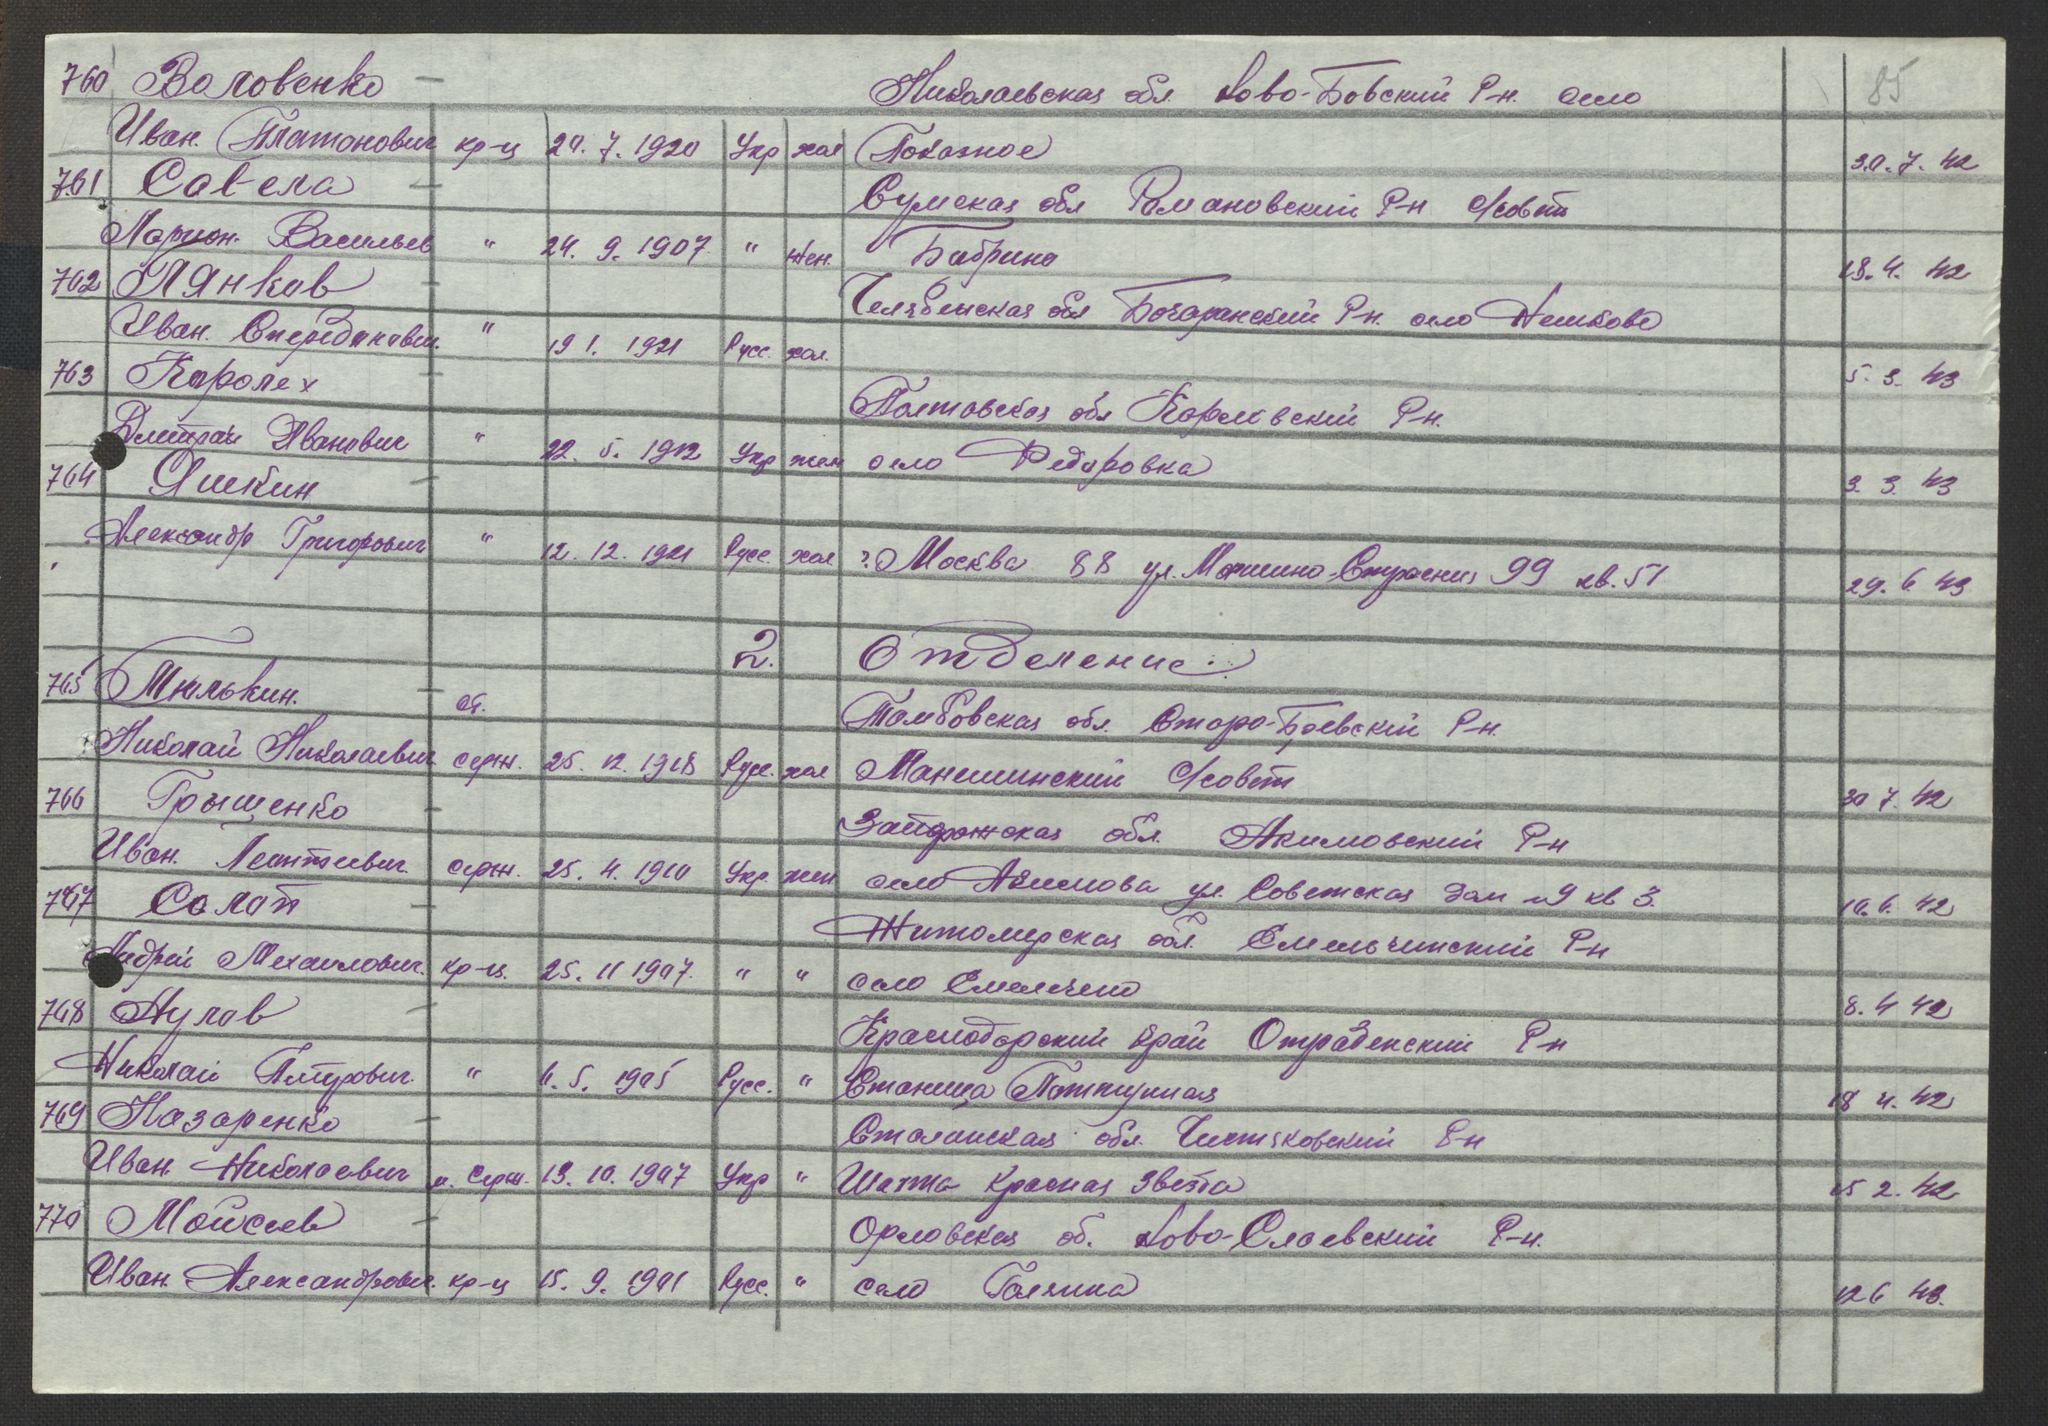 85
760 Воловенко — Николаевская обл. Ново-Бовский Р-н. село
Иван. Платонович кр-ц 20.7.1920 Укр хол Показное 30.7.42
761 Савела — Сумская обл Романовский Р-н С/совет
Ларион. Васильев " 24.9.1907 " жен. Бабрино 18.4.42
762 Пянков — Челябенская обл Бочаранский Р-н. село Нешково
Иван. " 19 1. 1921 Русс. хол. 5.3.43
763 Королех — Полтовская обл Карловский Р-н.
Дмитрий Иванович " 22.5.1912 Укр жен село Федоровка 3.3.43
764 Яшкин —
Александр Григорович " 12.12.1921 Русс. хол г. Москва 88 ул. 99 кв. 51 29.6.43
2. Отделение.
765 Тюлькин. — ст. Тамбовская обл. Старо-Боевский Р-н.
Николай Николаевич серж. 25.12.1918 Русс. хол Манешинский С/совет 30 7.42
766 Грыщенко — обл. Акимовский Р-н
Иван. Леонтиевич. серж. 25.4.1910 Укр жен село Акимова ул. Советская дом №9 кв 3. 10.6.42
767 Солоп — Житомерская обл. Емельчинский Р-н
Андрей Михаилович. кр-ц. 25.11 1907. " " село Емелечено 8.4 42
768 Нулов — Краснодарский край Отрадненский Р-н
Николай Питрович. " 11.5.1905 Русс. " Станица 18 4.42
769 Назаренко — Сталинская обл. Чистяковский Р-н
Иван Николаевич м. серж. 13.10.1907 Укр " Шахта Красная Звезта 15 2.42
770 Мойсеев — Орловская об. Ново-Слаевский Р-н.
Иван Александрович кр-ц 15.9.1901 Русс. " село Голяина 12 6 43.